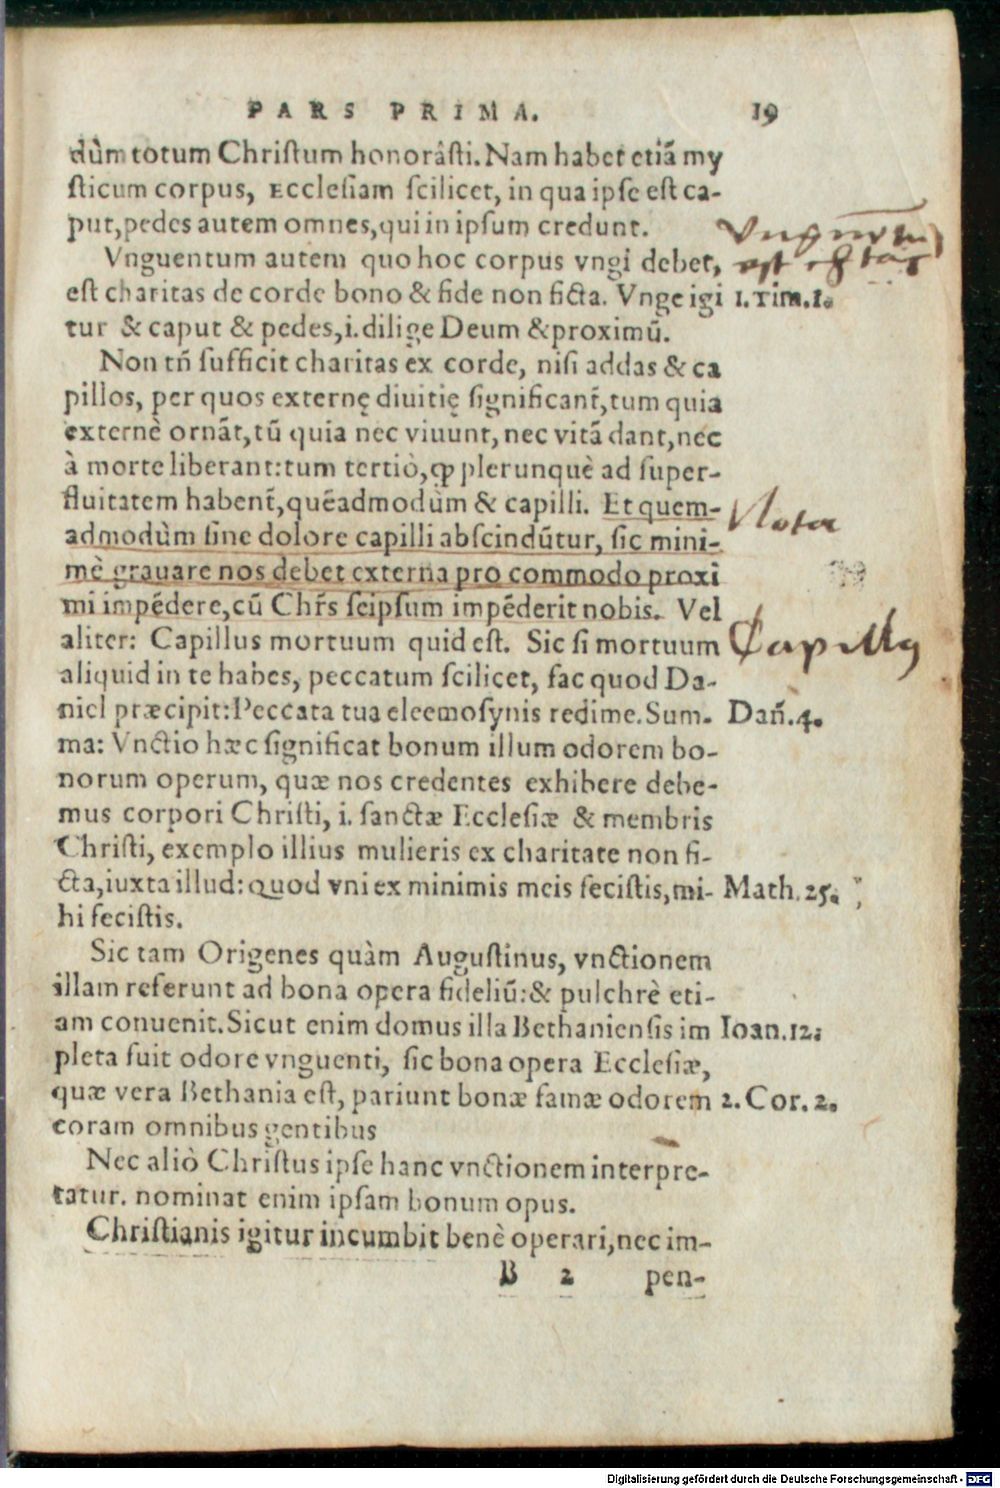 PARS PRIMA. 19
dùm totum Christum honorâsti. Nam habet etiã my
sticum corpus, Ecclesiam scilicet, in qua ipse est ca-
put, pedes autem omnes, qui in ipsum credunt.
Vnguentum autem quo hoc corpus vngi debet,
est charitas de corde bono & fide non ficta. Vnge igi 1. Tim. 1.
tur & caput & pedes, i. dilige Deum & proximũ.
Non tñ sufficit charitas ex corde, nisi addas & ca
pillos, per quos externę diuitię significant̃, tum quia
externè ornãt, tũ quia nec viuunt, nec vitã dant, nec
à morte liberant: tum tertiò, qp plerunquè ad super-
fluitatem habent̃, quẽadmodùm & capilli. Et quem- Nota
admodùm sine dolore capilli abscindũtur, sic mini-
mè grauare nos debet externa pro commodo proxi
mi impẽdere, cũ Chr̃s seipsum impẽderit nobis. Vel
aliter: Capillus mortuum quid est. Sic si mortuum Capillus
aliquid in te habes, peccatum scilicet, fac quod Da-
niel præcipit: Peccata tua eleemosynis redime. Sum- Dañ. 4.
ma: Vnctio hæc significat bonum illum odorem bo-
norum operum, quæ nos credentes exhibere debe-
mus corpori Christi, i. sanctæ Ecclesiæ & membris
Christi, exemplo illius mulieris ex charitate non fi-
cta, iuxta illud: quod vni ex minimis meis fecistis, mi- Math. 25.
hi fecistis.
Sic tam Origenes quàm Augustinus, vnctionem
illam referunt ad bona opera fideliũ: & pulchrè eti-
am conuenit. Sicut enim domus illa Bethaniensis im Ioan. 12.
pleta fuit odore vnguenti, sic bona opera Ecclesiæ,
quæ vera Bethania est, pariunt bonæ famæ odorem 2. Cor. 2.
coram omnibus gentibus
Nec aliò Christus ipse hanc vnctionem interpre-
tatur. nominat enim ipsam bonum opus.
Christianis igitur incumbit benè operari, nec im-
B 2 pen-
Digitalisierung gefördert durch die Deutsche Forschungsgemeinschaft - DFG